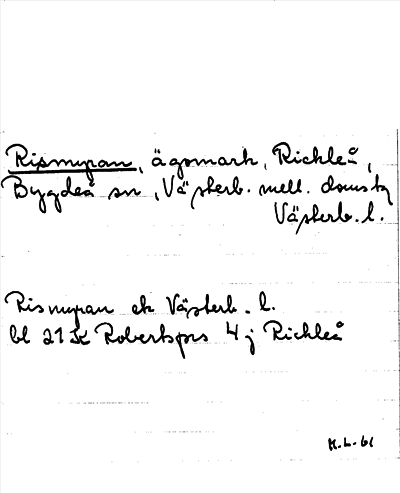 Rismyran, ägomark, Rickleå,
Bygdeå sn, Västerb. mell. domsky
Västerb. l.
Rismyran ek Västerb. l.
bl 21 K Robertsfors 4 j Rickleå